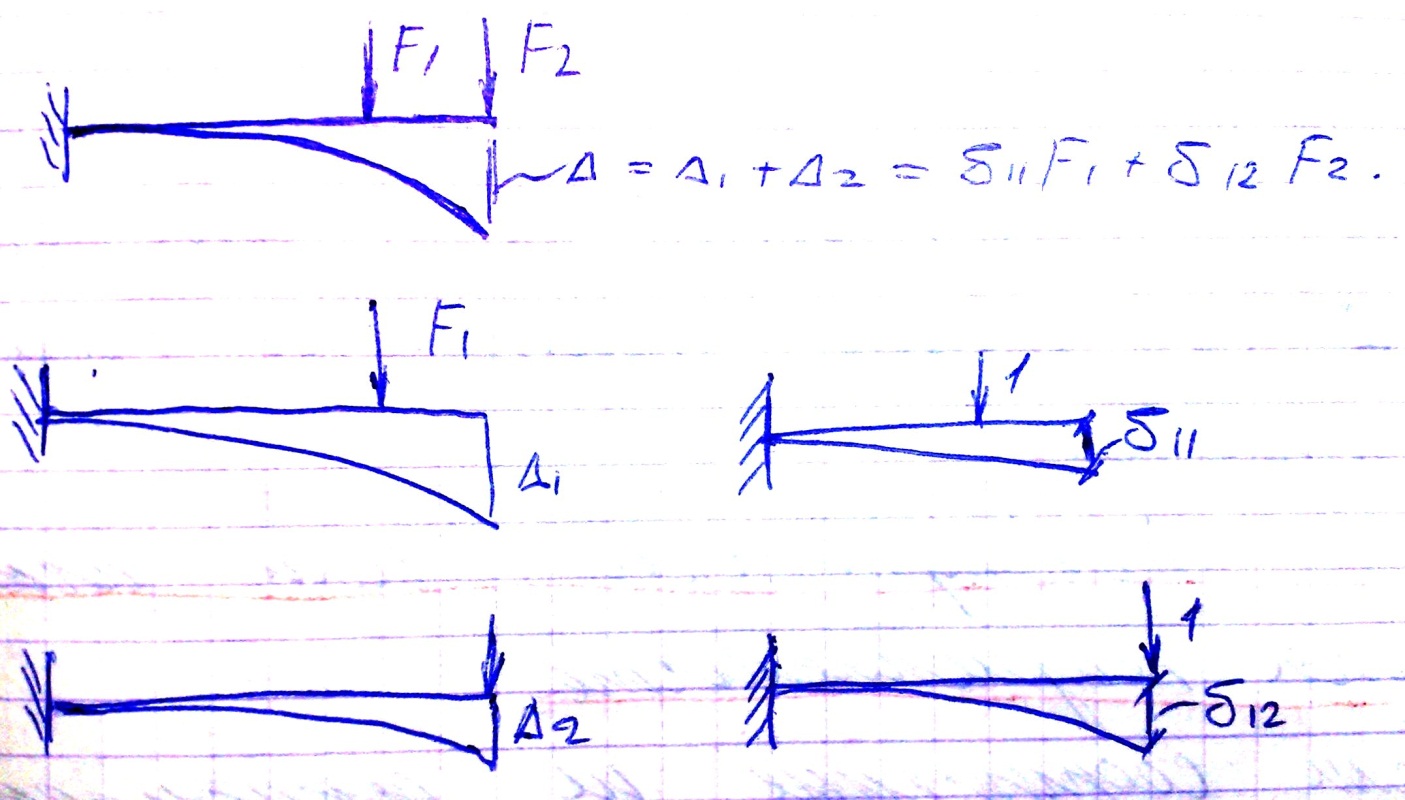 F₁ F₂
Δ = Δ₁ + Δ₂ = δ₁₁F₁ + δ₁₂ F₂.
F₁
Δ₁
1
δ₁₁
Δ₂
1
δ₁₂